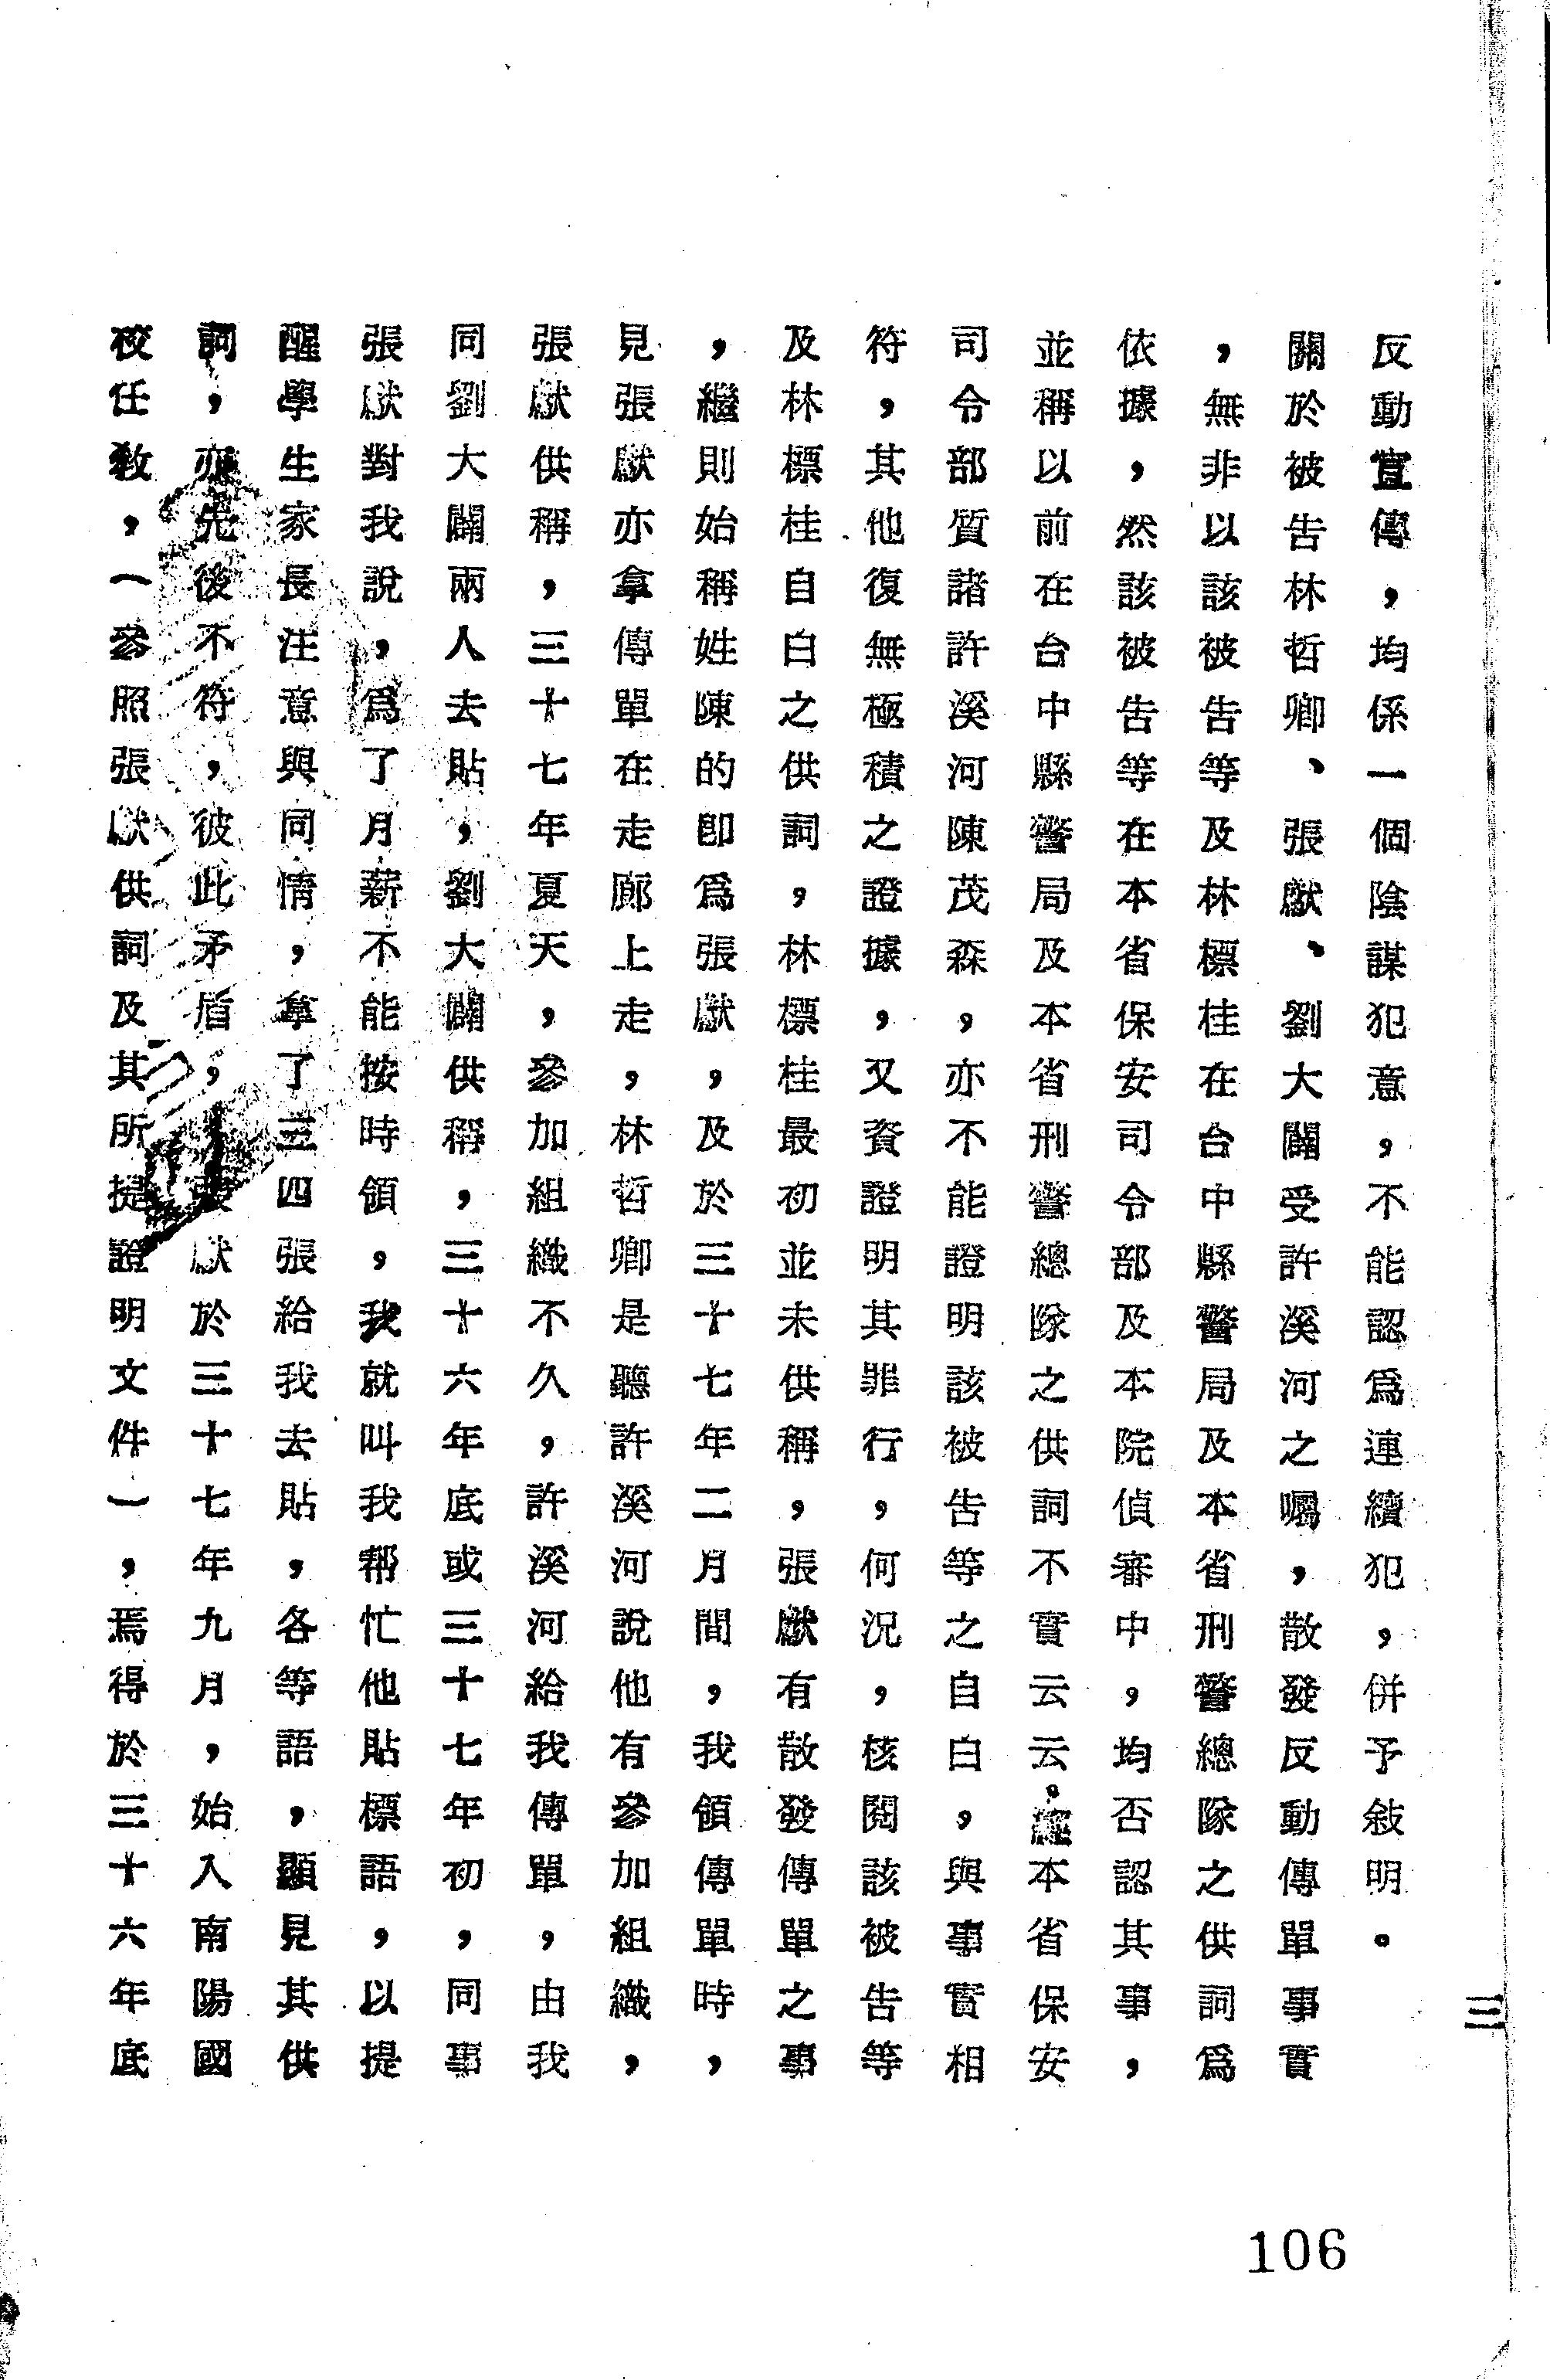 反動宣傳，均係一個陰謀犯意，不能認爲連續犯，併予敍明。
關於被告林哲卿、張獻、劉大關受許溪河之囑，散發反動傳單事實
，無非以該被告等及林標桂在台中縣警局及本省刑警總隊之供詞爲
依據，然該被告等在本省保安司令部及本院偵審中，均否認其事，
並稱以前在台中縣警局及本省刑警總隊之供詞不實云云，經本省保安
司令部質諸許溪河陳茂森，亦不能證明該被告等之自白，與事實相
符，其他復無極積之證據，又資證明其罪行，何況，核閱該被告等
及林標桂自白之供詞，林標桂最初並未供稱，張獻有散發傳單之事
，繼則始稱姓陳的卽爲張獻，及於三十七年二月間，我領傳單時，
見張獻亦拿傳單在走廊上走，林哲卿是聽許溪河說他有參加組織，
張獻供稱，三十七年夏天，參加組織不久，許溪河給我傳單，由我
同劉大關兩人去貼，劉大關供稱，三十六年底或三十七年初，同事
張獻對我說，爲了月薪不能按時領，我就叫我帮忙他貼標語，以提
醒學生家長注意與同情，拿了三四張給我去貼，各等語，顯見其供
詞，亦先後不符，彼此矛盾，獻於三十七年九月，始入南陽國
校任教，（參照張獻供詞及其所提證明文件），焉得於三十六年底
三
106